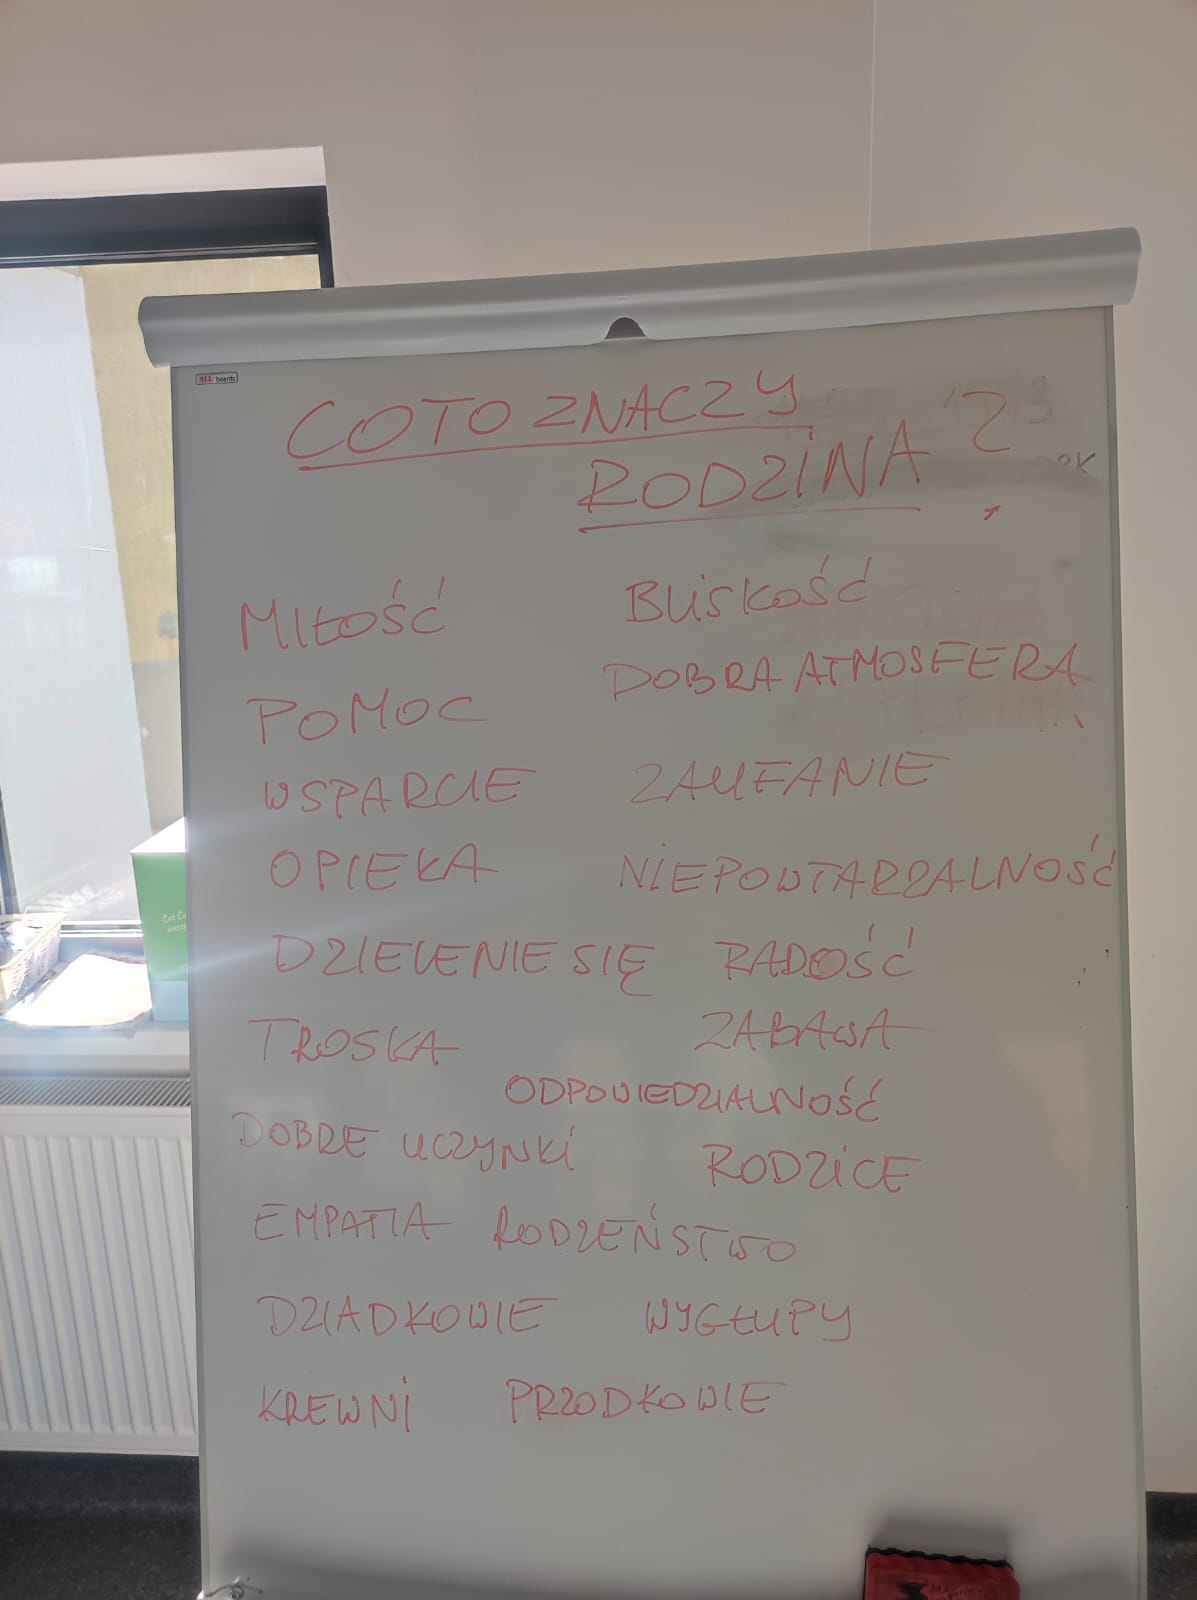 ALL boards
CO TO ZNACZY
RODZINA ?
MIŁOŚĆ BLISKOŚĆ
POMOC DOBRA ATMOSFERA
WSPARCIE ZAUFANIE
OPIEKA NIEPOWTARZALNOŚĆ
DZIELENIE SIĘ RADOŚĆ
TROSKA ZABAWA
ODPOWIEDZIALNOŚĆ
DOBRE UCZYNKI RODZICE
EMPATIA RODZEŃSTWO
DZIADKOWIE WYGŁUPY
KREWNI PRZODKOWIE